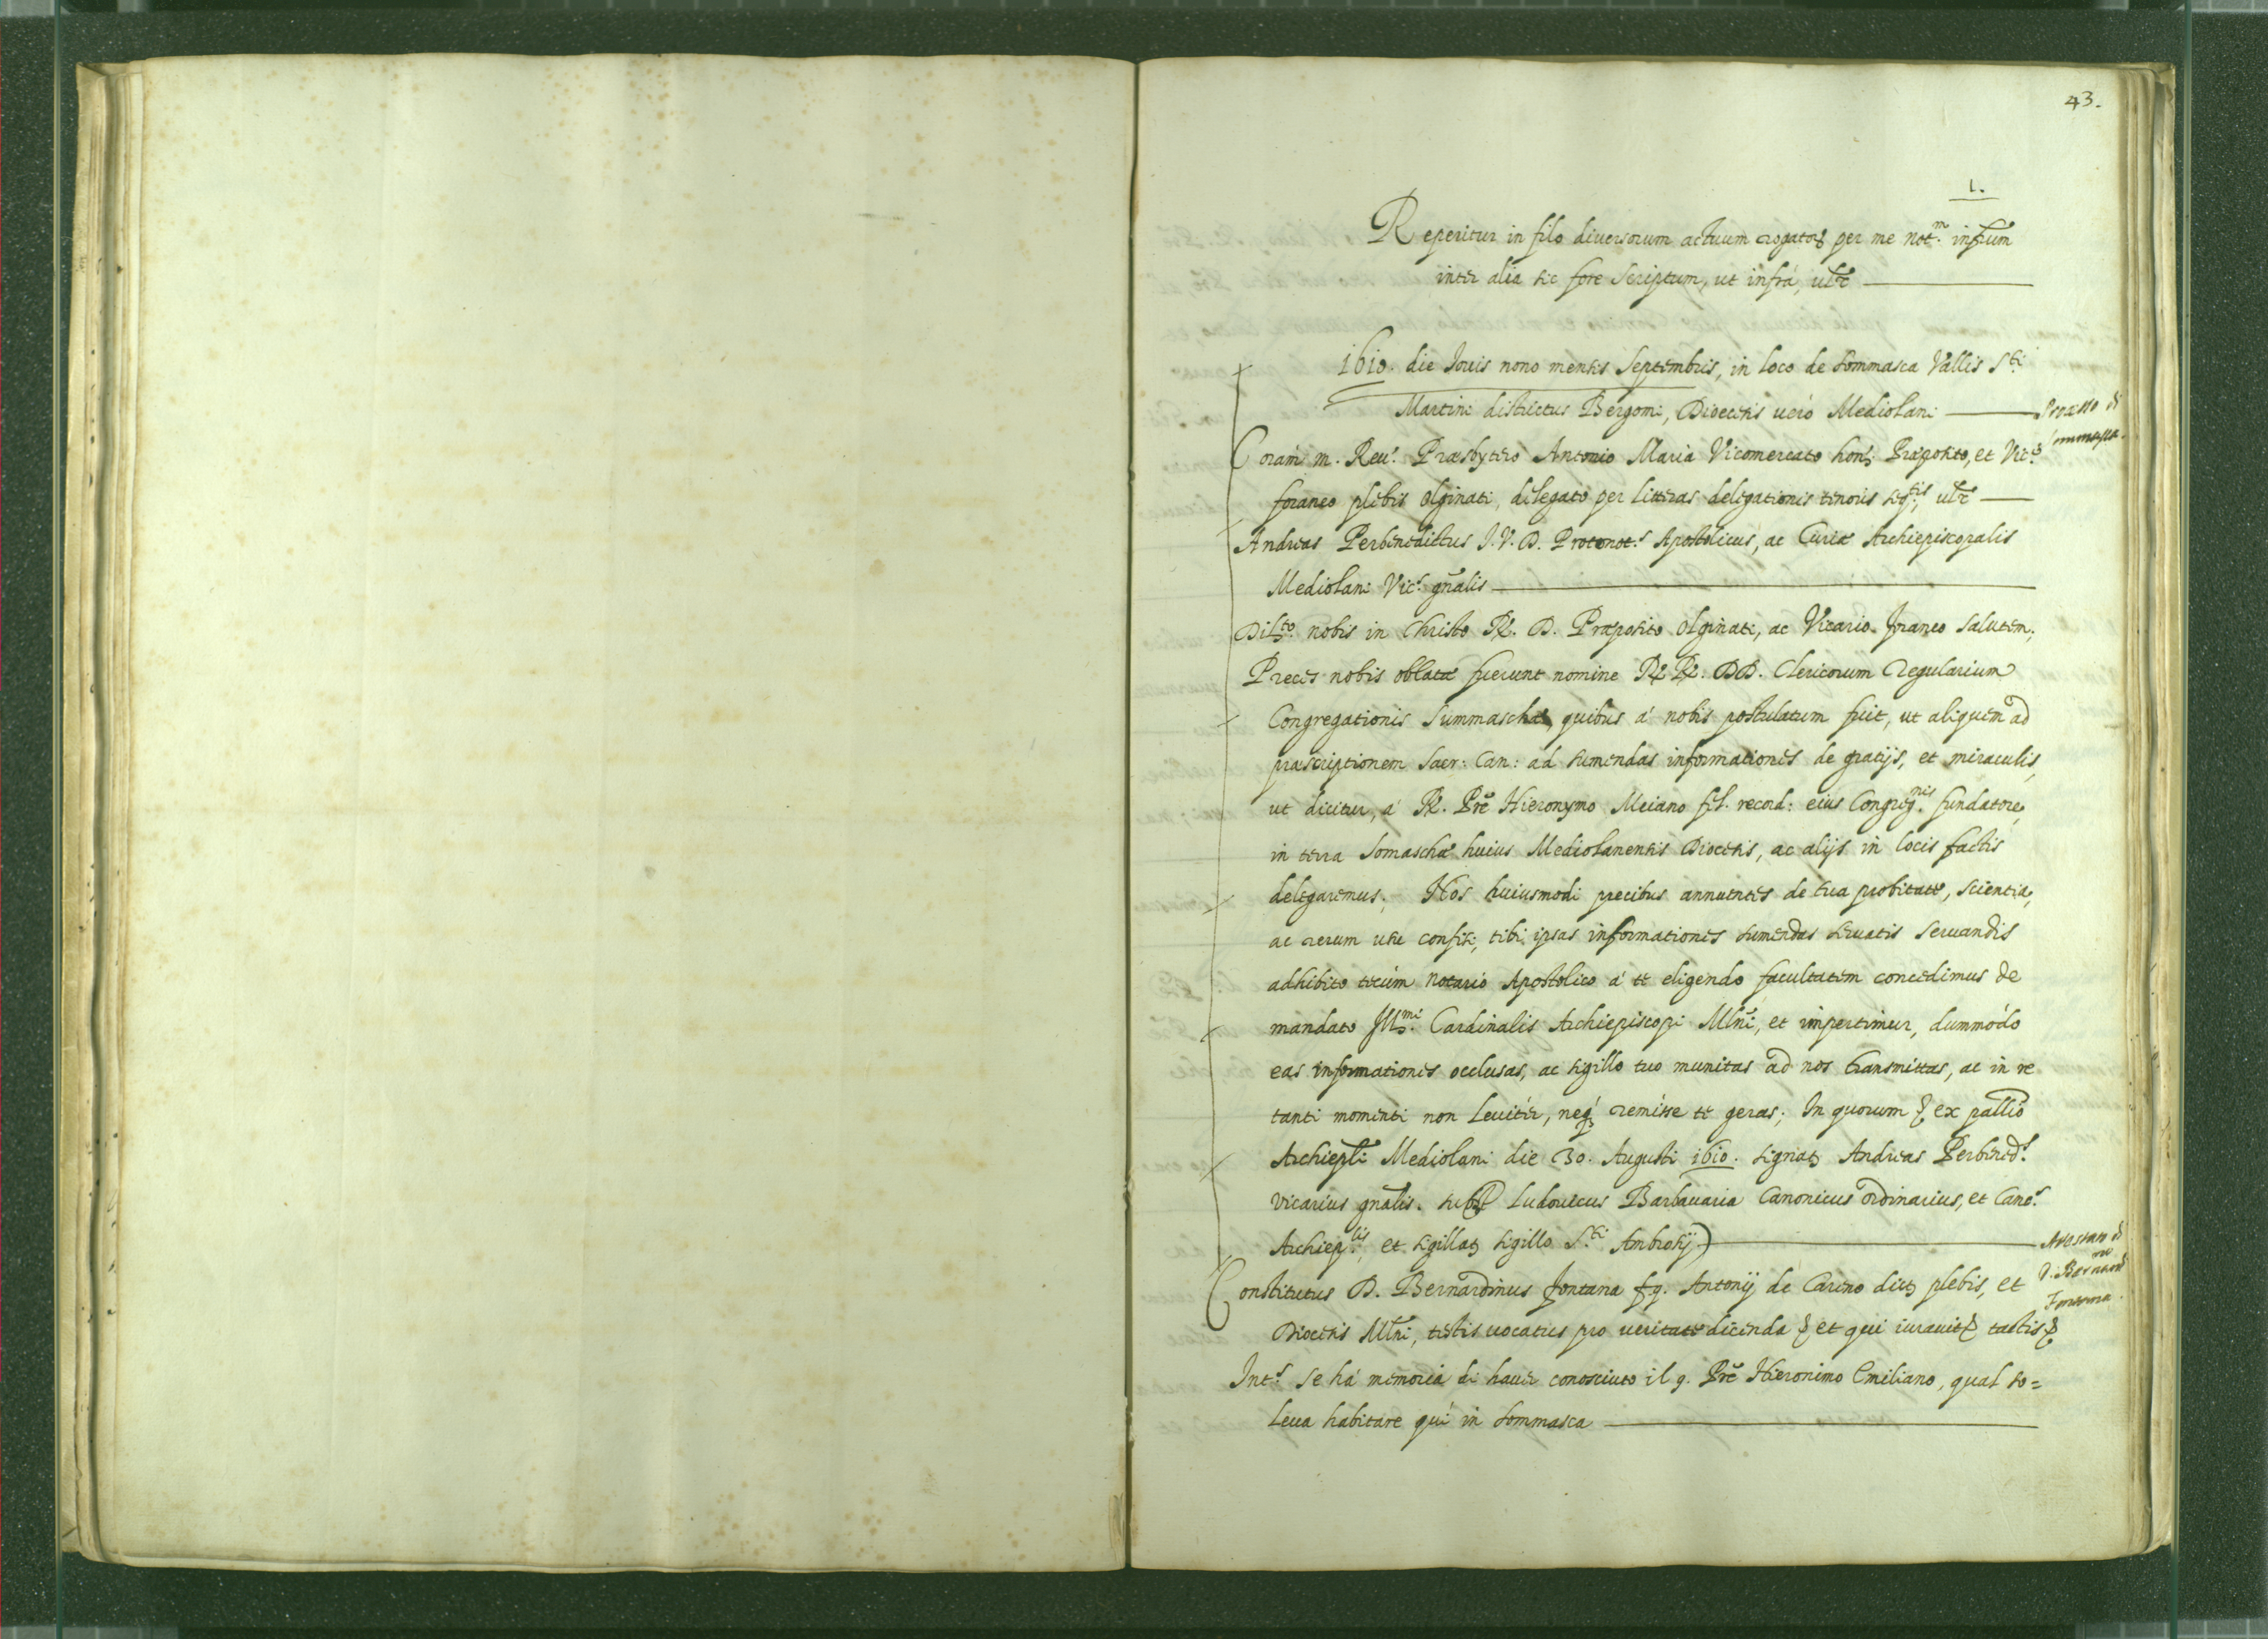 43.
1.
Reperitur in filo diversorum actuum rogator. per me Not.m infrũm
inter alia sic fore scriptum, ut infrà, ulr̃
1610. die Iouis nono mensis Septembris, in loco de Sommasca Vallis S.ti
Martini districtus Bergomi, Diocesis uerò Mediolani
Processo di
Sommasca.
Coram m. Reu.º Præsbytero Antonio Maria Vicomercato hon. Præposito, et Vic.º
foraneo plebis Olginati, delegato per litteras delegationis tenoris seq.tis, ulr̃
Andreas Perbenedictus I. V. D. Protonot.s Apostolicus, ac Curiæ Archiepiscopalis
Mediolani Vic.s gñalis
Dil.to nobis in Christo R. D. Præposito Olginati, ac Vicario foraneo salutem;
Preces nobis oblatæ fuerunt nomine RR. DD. Clericorum Regularium
Congregationis Summaschæ, quibus à nobis postulatum fuit, ut aliquem ad
præscriptionem Sacr: Can: ad sumendas informationes de gratijs, et miraculis,
ut dicitur, à R. Prẽ Hieronymo Meiano fel. record: eius Congreg.nis fundatore,
in terra Somaschæ huius Mediolanensis Diocesis, ac alijs in locis factis
delegaremus; Nos huiusmodi precibus annuentes de tua probitate, scientia,
ac rerum usu confisi, tibi ipsas informationes sumendas seruatis seruandis
adhibito tecùm Notario Apostolico à te eligendo facultatem concedimus de
mandato Ill.mi Cardinalis Archiepiscopi Mlñi, et impertimur, dummòdo
eas informationes occlusas, ac sigillo tuo munitas ad nos transmittas, ac in re
tanti momenti non leuitèr, neq; remisse te geras; In quorum & ex pallio
Archiepli Mediolani die 30. Augusti 1610. signat. Andreas Perbened.s
vicarius gñalis. sub. Ludouicus Barbauaria Canonicus ordinarius, et Canc.s
Archiep.lis, et sigillat. sigillo S.ti Ambrosij)
Constitutus D. Bernardinus Fontana fq. Antonij de Careno dict. plebis, et
Diocesis Mlñi, testis uocatus pro ueritate dicenda & et qui iurauit & tactis &
D. Bernardino
Fontana.
Int.s se hà memoria di hauer conosciuto il q. Prẽ Hieronimo Emiliano, qual so=
leua habitare quì in Sommasca